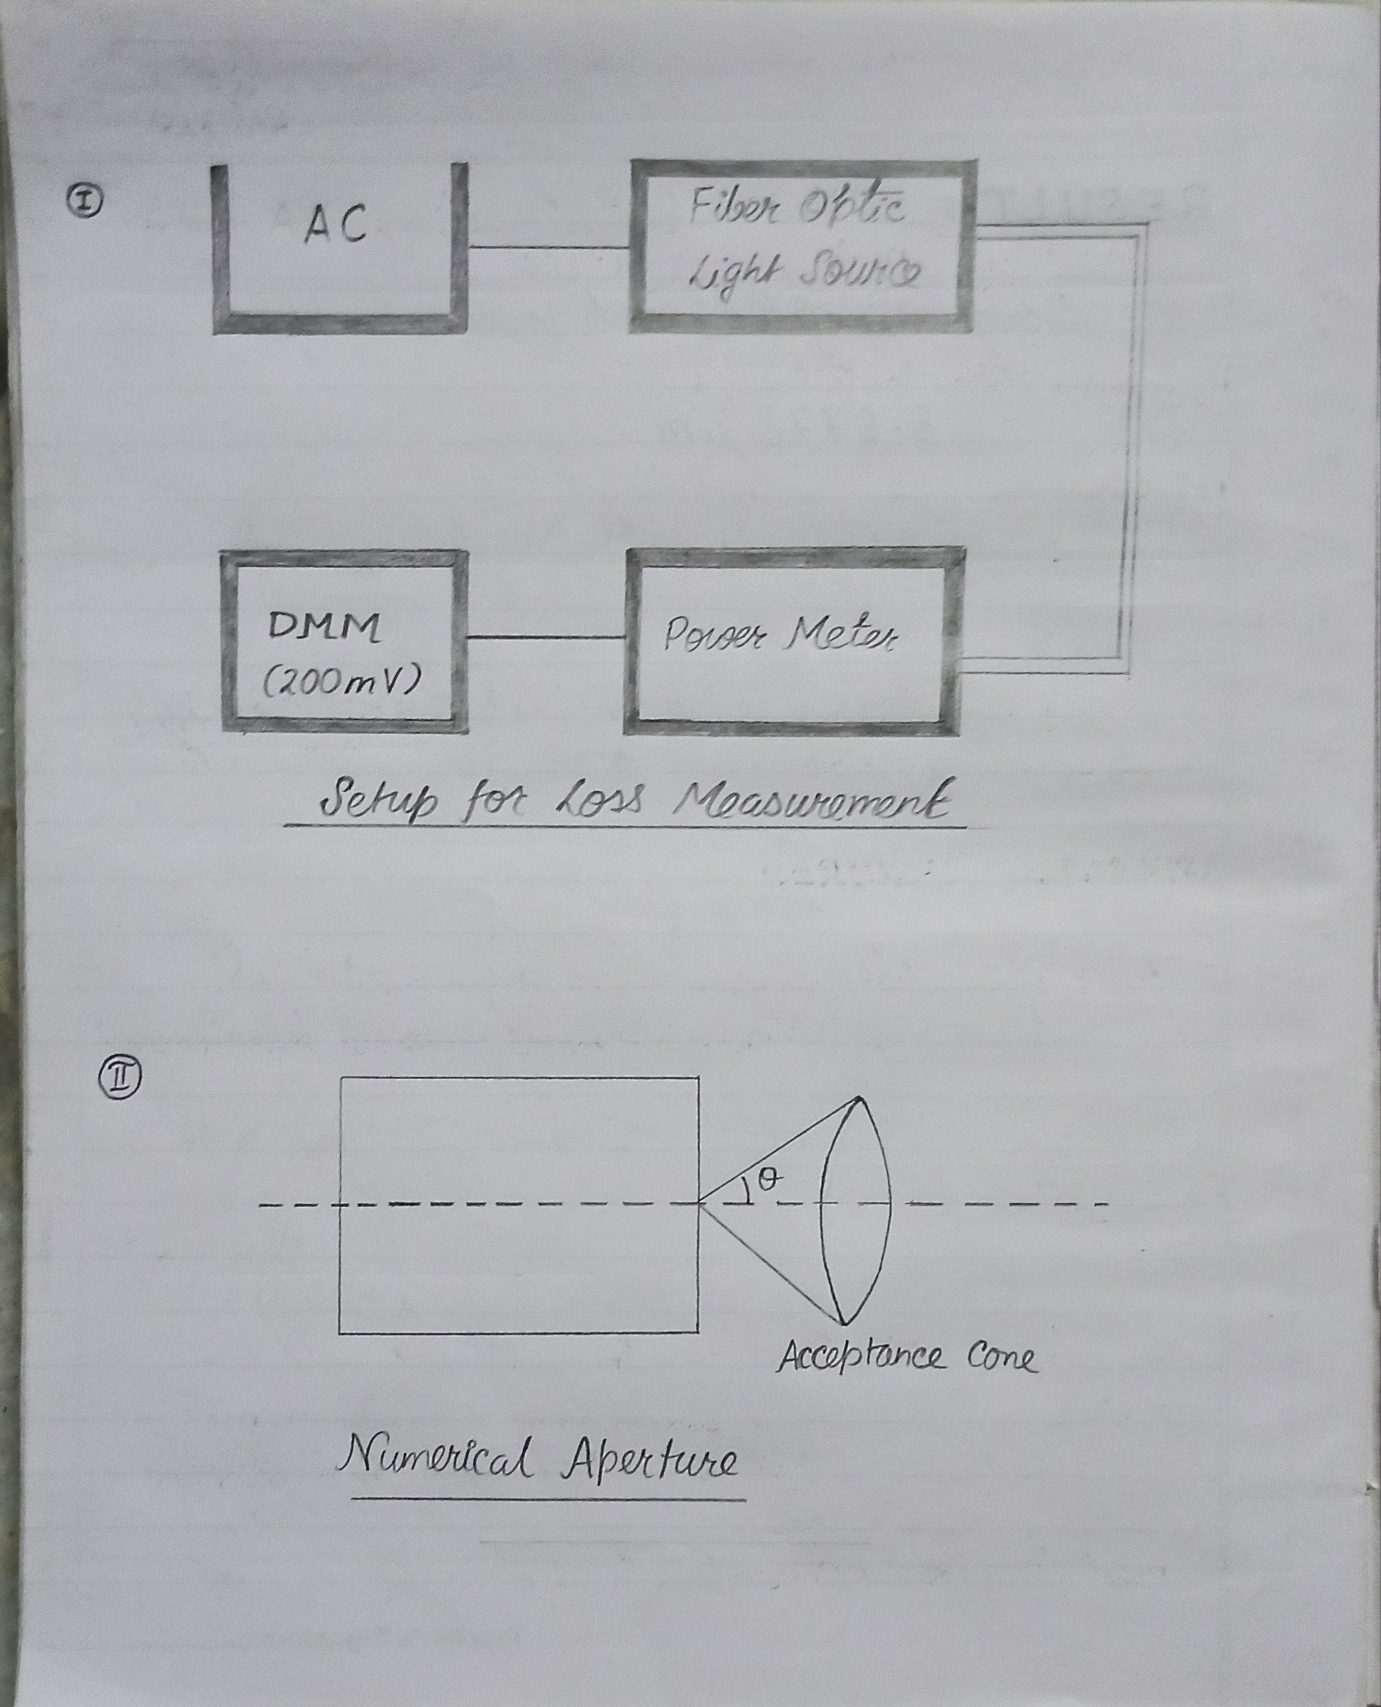 I
AC
Fiber Optic
Light Source
DMM
(200mV)
Power Meter
Setup for Loss Measurement
II
θ
Acceptance Cone
Numerical Aperture